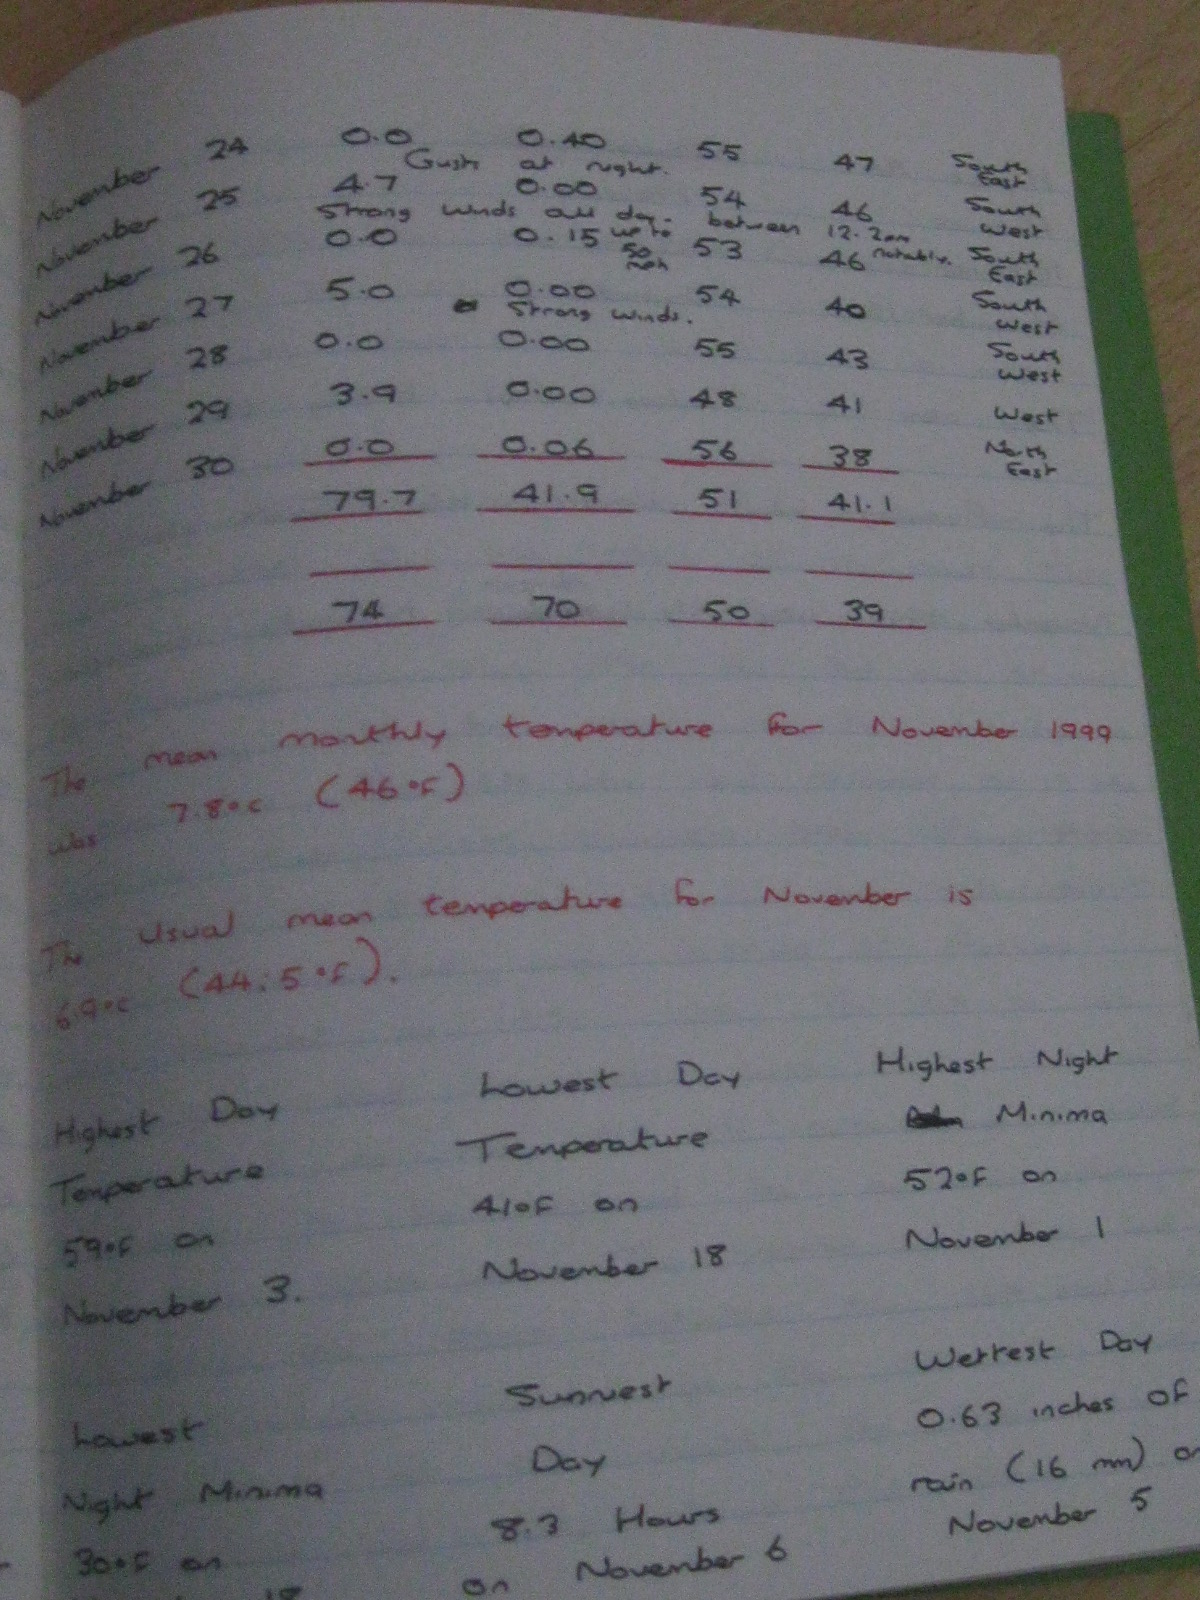 November 24 0.0 0.40 55 47 South East
Gusts at night.
November 25 4.7 0.00 54 46 South West
Strong winds all day. between 12.2am notably.
up to 50 mph
November 26 0.0 0.15 53 46 South East
November 27 5.0 0.00 54 40 South West
Strong winds.
November 28 0.0 0.00 55 43 South West
November 29 3.9 0.00 48 41 West
November 30 0.0 0.06 56 38 North East
79.7 41.9 51 41.1
74 70 50 39
The mean monthly temperature for November 1999
was 7.8°C (46°F)
The usual mean temperature for November is
6.9°C (44.5°F).
Highest Day
Temperature
59°F on
November 3.
Lowest Day
Temperature
41°F on
November 18
Highest Night
Minima
52°F on
November 1
Lowest
Night Minima
30°F on
18
Sunniest
Day
8.3 Hours
on November 6
Wettest Day
0.63 inches of
rain (16 mm) on
November 5